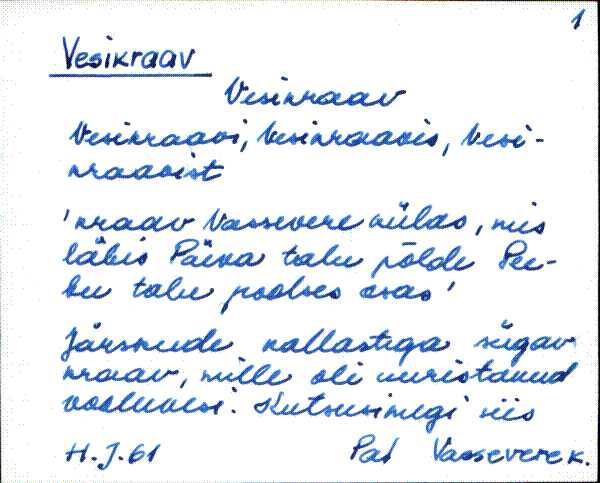 1
Vesikraav
Vesikraav
Vesikraavi, Vesikraavis, Vesi-
kraavist
'kraav Vassevere külas, mis
läbis Päeva talu põldu Pee-
bu talu poolses osas'
Järskude kallastega sügav
kraav, mille oli uuristanud
vooluvesi. Kutsusimegi siis
H.J.61 Pal Vassevere k.